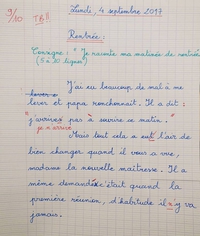 9/10 TB!!
Lundi, 4 septembre 2017
Rentrée:
Consigne: "Je raconte ma matinée de rentrée"
(5 à 10 lignes)
J'ai eu beaucoup de mal à me
lever et papa ronchonnait. Il a dit :
"j'arrive pas à sourire ce matin."
je n'arrive
Mais tout cela a eu l'air de
bien changer quand il vous a vue,
madame la nouvelle maîtresse. Il a
même demandé c'était quand la
première réunion, d'habitude il y va
jamais.